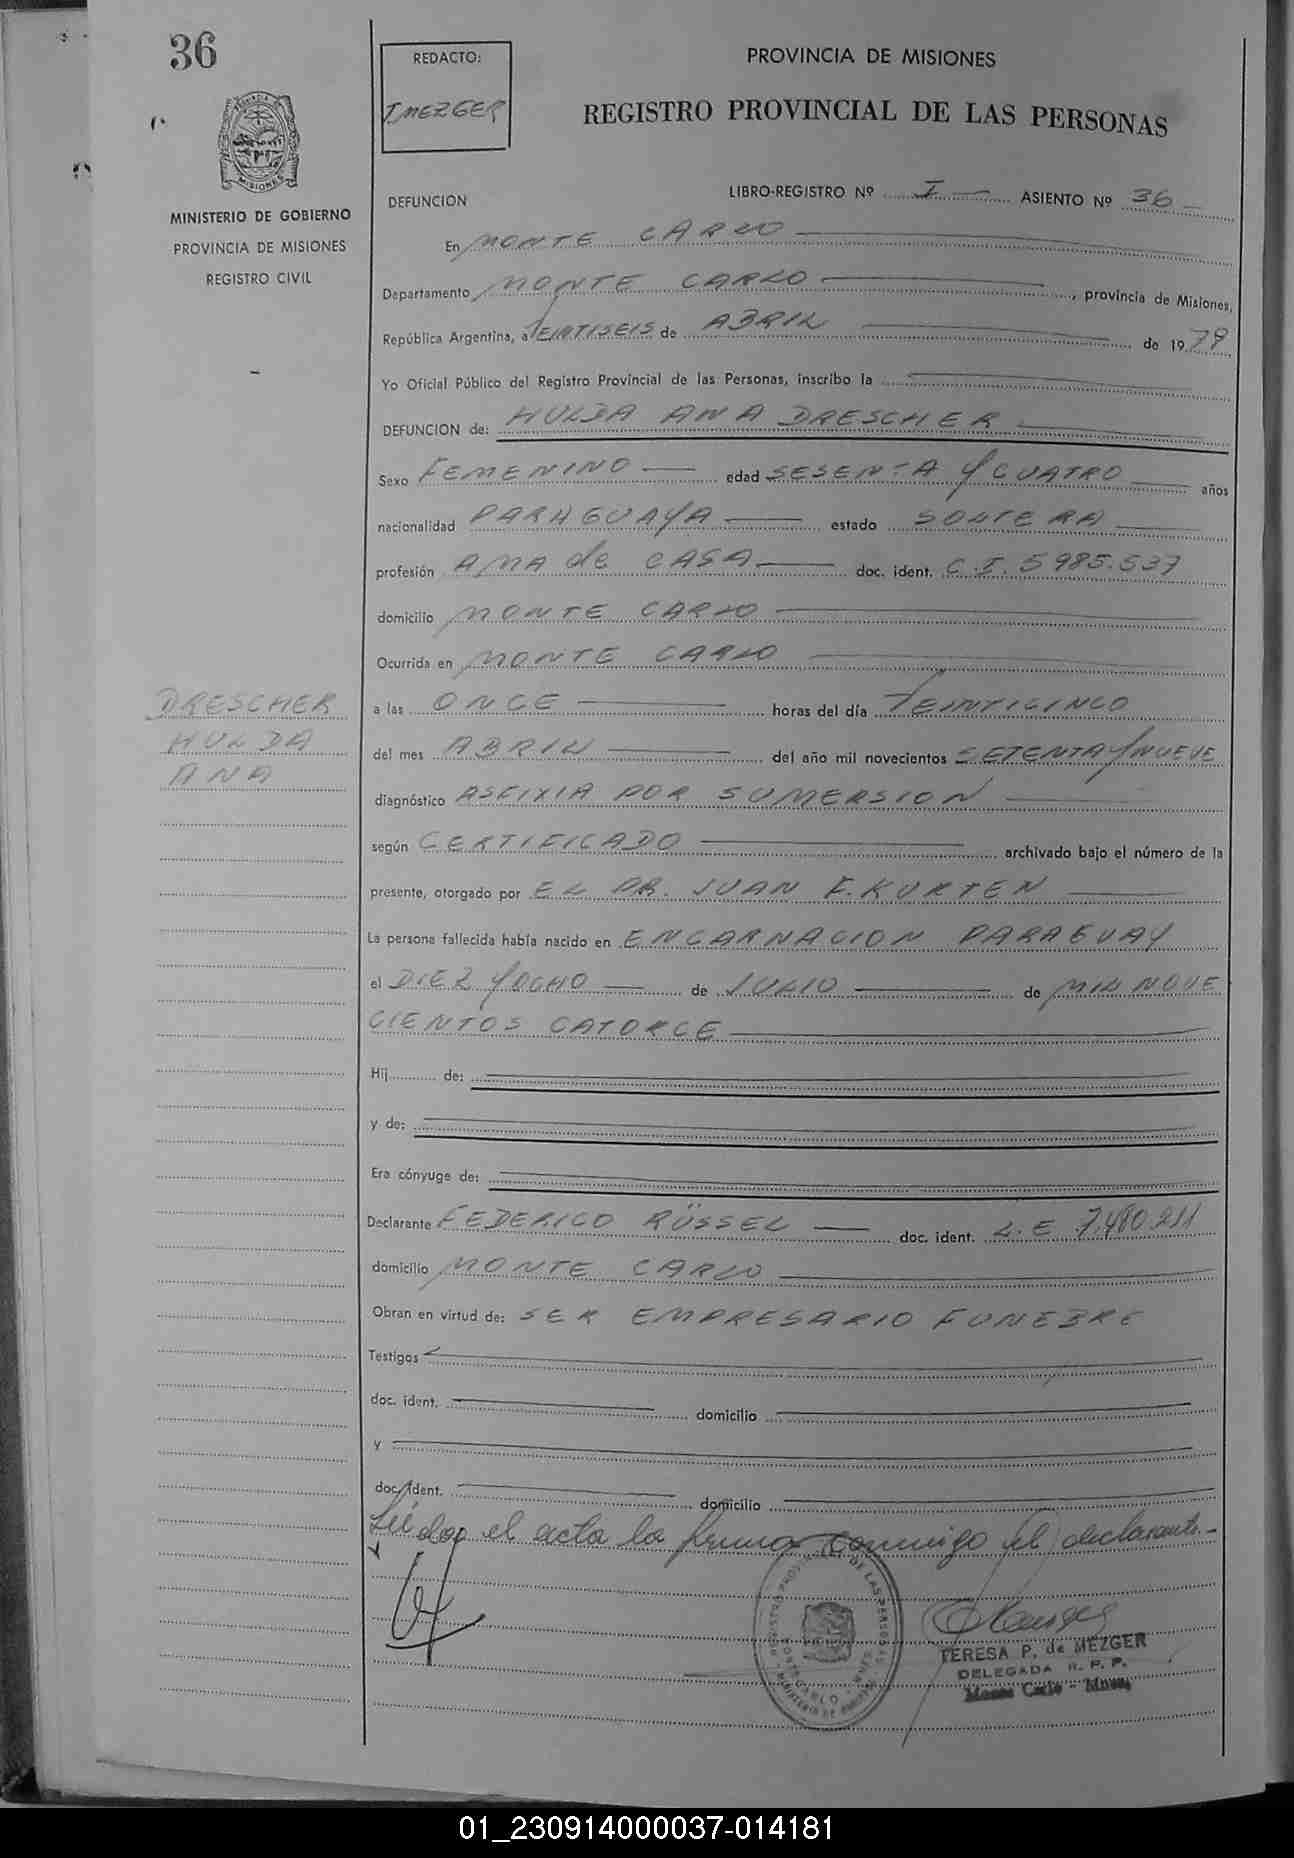 36
REDACTO:
T. MEZGER
PROVINCIA DE MISIONES
REGISTRO PROVINCIAL DE LAS PERSONAS
MISIONES
MINISTERIO DE GOBIERNO
PROVINCIA DE MISIONES
REGISTRO CIVIL
DEFUNCION
LIBRO-REGISTRO Nº I ASIENTO Nº 36
En MONTE CARLO
Departamento MONTE CARLO, provincia de Misiones,
República Argentina, a VEINTISEIS de ABRIL de 1979
Yo Oficial Público del Registro Provincial de las Personas, inscribo la
DEFUNCION de: HULDA ANA DRESCHER
Sexo FEMENINO edad SESENTA Y CUATRO años
nacionalidad PARAGUAYA estado SOLTERA
profesión AMA de CASA doc. ident. C.I. 5985.537
domicilio MONTE CARLO
Ocurrida en MONTE CARLO
DRESCHER
HULDA
ANA
a las ONCE horas del día VEINTICINCO
del mes ABRIL del año mil novecientos SETENTA Y NUEVE
diagnóstico ASFIXIA POR SUMERSION
según CERTIFICADO archivado bajo el número de la
presente, otorgado por EL DR. JUAN F. KURTEN
La persona fallecida había nacido en ENCARNACION PARAGUAY
el DIEZ Y OCHO de JULIO de MIL NOVE
CIENTOS CATORCE
Hij de:
y de:
Era cónyuge de:
Declarante FEDERICO RÜSSEL doc. ident. L.E 7.480.211
domicilio MONTE CARLO
Obran en virtud de: SER EMPRESARIO FUNEBRE
Testigos
doc. ident. domicilio
y
doc. ident. domicilio
Leida el acta la firma conmigo el declarante.-
TERESA P. de MEZGER
DELEGADA R. P. P.
Monte Carlo - Mnes.
01_230914000037-014181